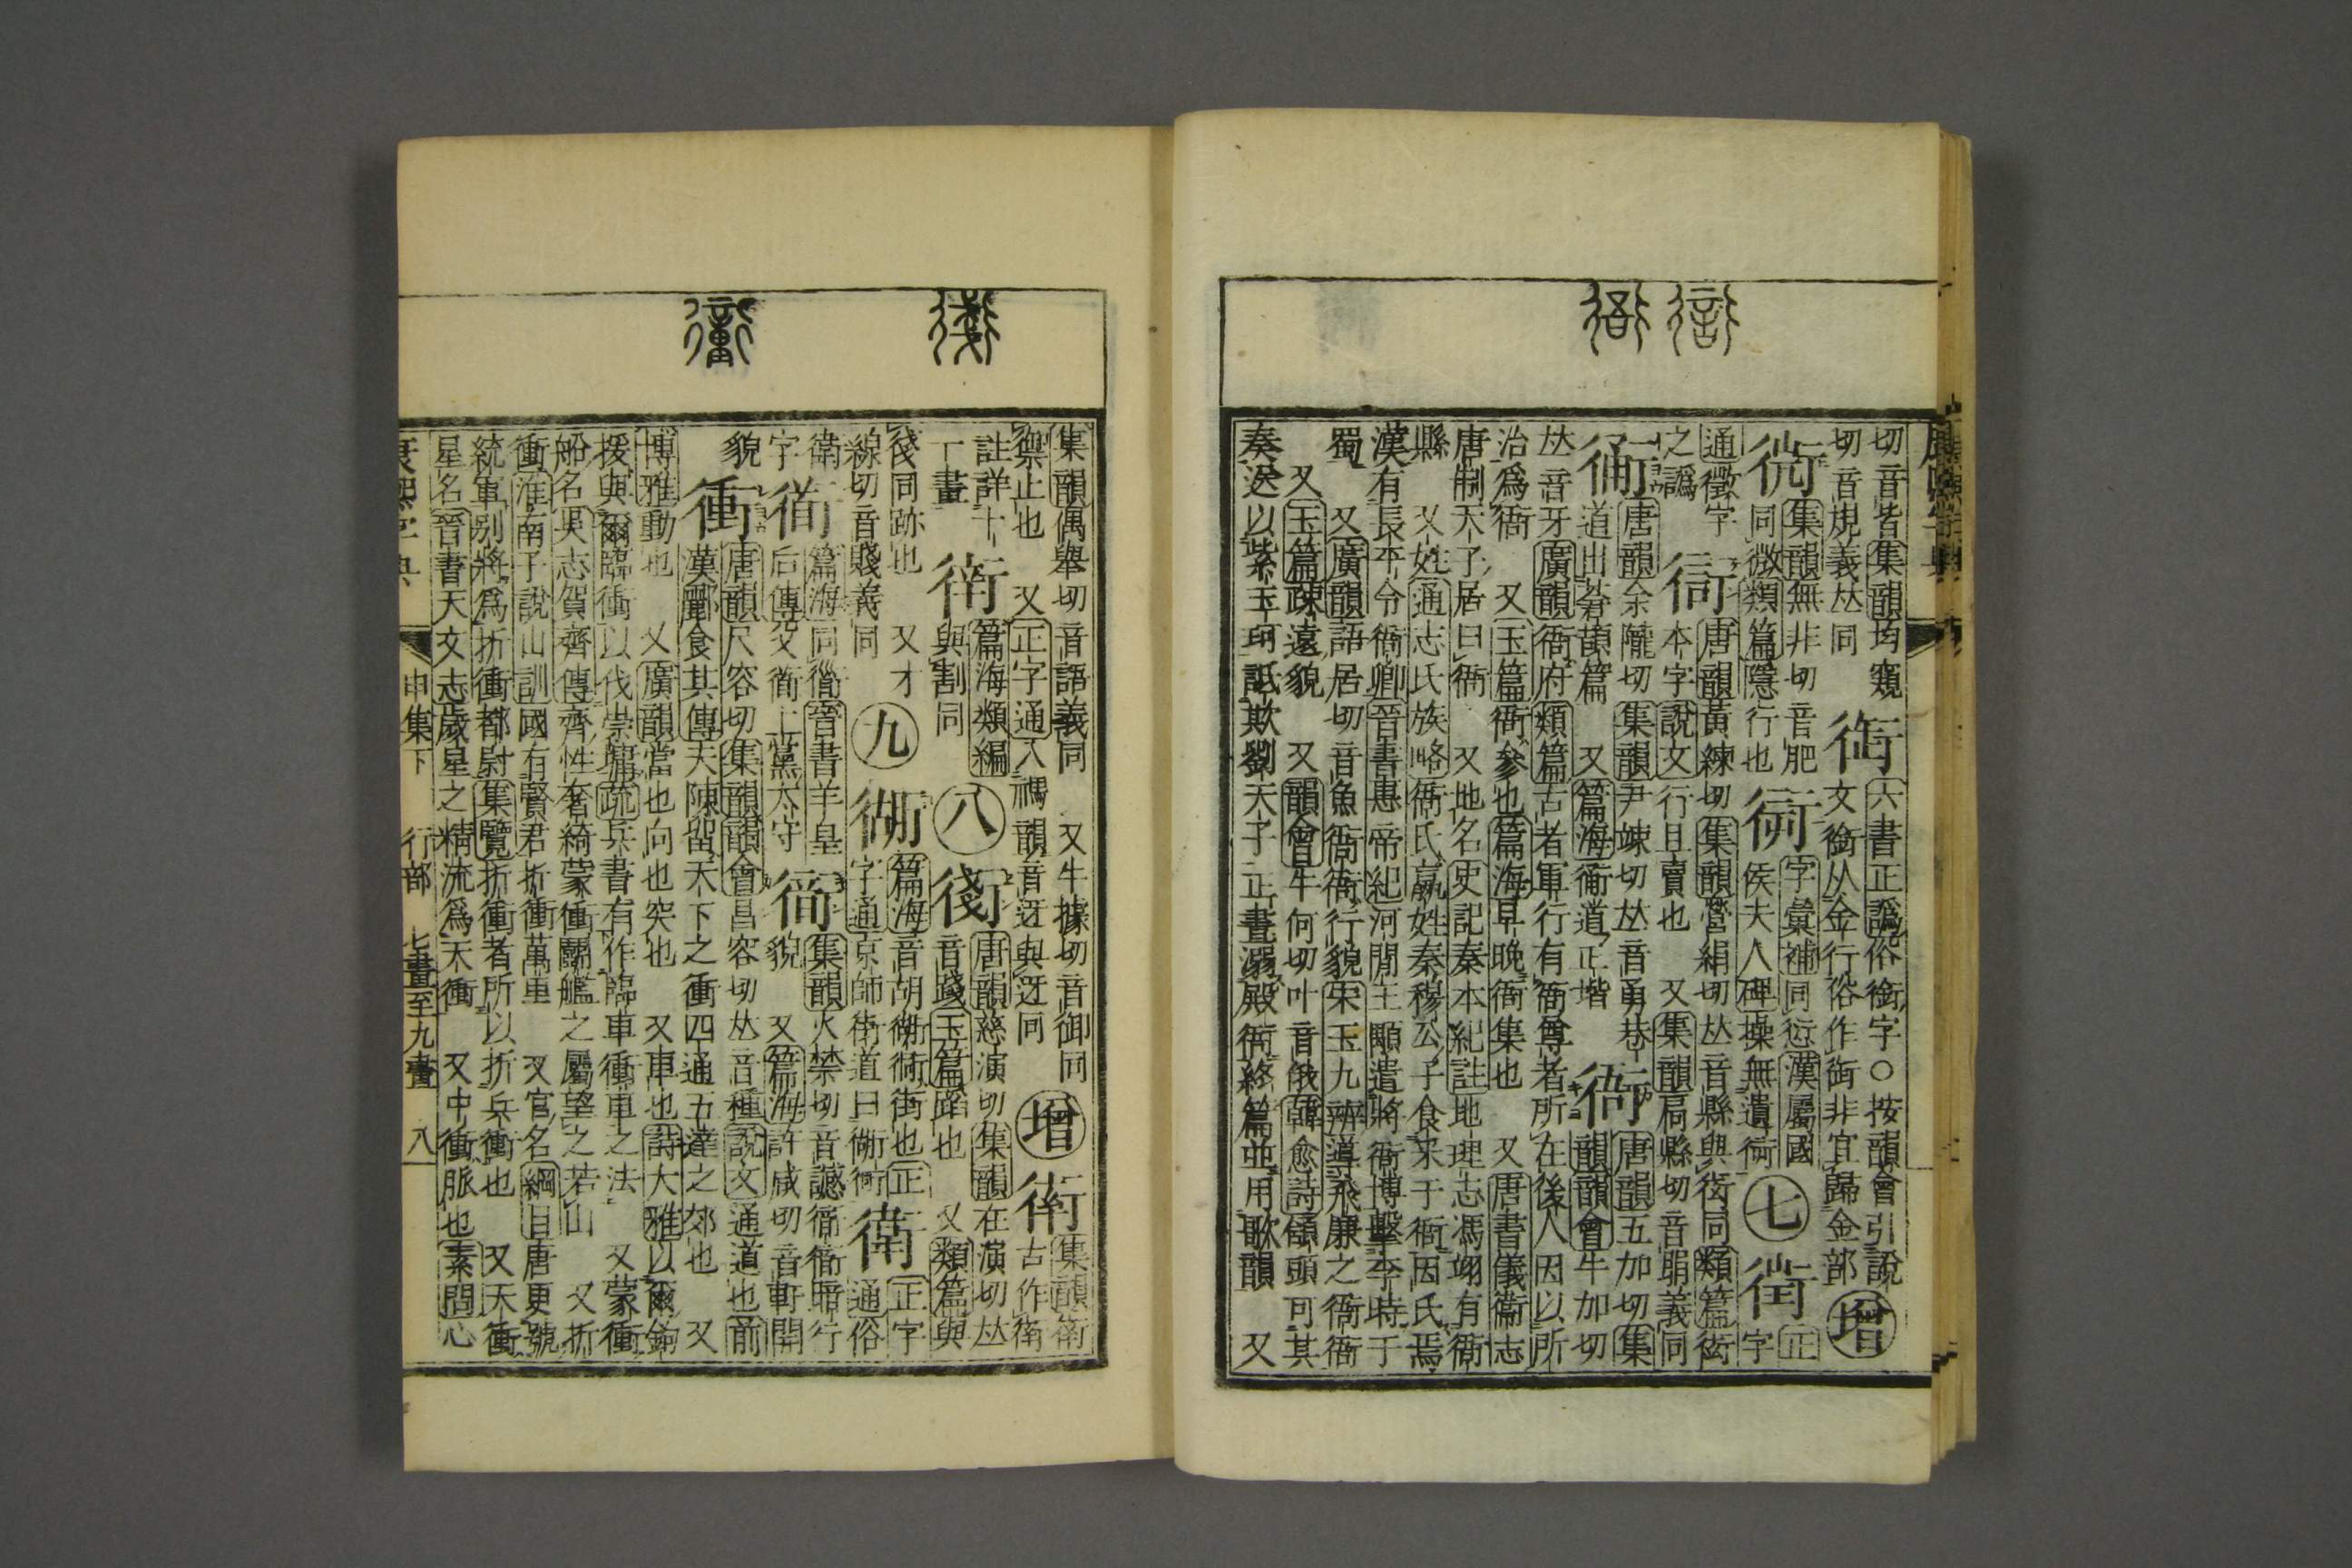 切音眥集韻均窺
切音規義𠀤同
六書正譌俗銜字○按韻會引說
文銜从金行俗作衘非宜歸金部
增
集韻無非切音肥
同微類篇隱行也
字彙補同衍漢屬國
侯夫人碑操無遺衏
七
正字
通徵字
之譌
衒
唐韻黃練切集韻熒絹切𠀤音縣與衒同類篇衒
本字說文行且賣也 又集韻扃縣切音睊義同
衕
唐韻余隴切集韻尹竦切𠀤音勇巷
道出蒼頡篇 又篇海衕道正堦
衙
唐韻五加切集
韻韻會牛加切
𠀤音牙廣韻衙府類篇古者軍行有衙尊者所在後人因以所
治爲衙 又玉篇衙參也篇海早晚衙集也 又唐書儀衞志
唐制天子居曰衙 又地名史記秦本紀註地理志馮翊有衙
縣 又姓通志氏族略衙氏嬴姓秦穆公子食采于衙因氏焉
漢有長平令衙卿晉書惠帝紀河閒王顒遣將衙博擊李特于
蜀 又廣韻語居切音魚衙衙行貌宋玉九辨導飛廉之衙衙
又玉篇疎遠貌 又韻會牛何切叶音俄韓愈詩傾頭可其
奏送以紫玉珂詆欺劉天子正晝溺殿衙終篇並用歌韻 又
集韻偶舉切音語義同 又牛據切音御同
禦止也 又正字通入禡韻音迓與迓同
增
衛
集韻衛
古作衞
註詳十
一畫
篇海類編
與割同
八
衝
唐韻慈演切集韻在演切𠀤
音踐玉篇蹈也 又類篇與
後同跡也 又才
線切音賤義同
九
衚
篇海音胡衚衕街也正
字通京師街道曰衚衕
衛
正字
通俗
衛
字
篇海同衜晉書羊皇
后傳父衜上黨太守
集韻火禁切音讖衙衙暗行
貌 又篇海許咸切音軒開
貌
衝
唐韻尺容切集韻韻會昌容切𠀤音種說文通道也前
漢酈食其傳夫陳留天下之衝四通五達之郊也 又
博雅動也 又廣韻當也向也突也 又車也詩大雅以爾鉤
援與爾臨衝以伐崇墉疏兵書有作臨車衝車之法 又蒙衝
船名吳志賀齊傳齊性奢綺蒙衝鬬艦之屬望之若山 又折
衝淮南子說山訓國有賢君折衝萬里 又官名綱目唐更號
統軍別將爲折衝都尉集覽折衝者所以折兵衝也 又天衝
星名晉書天文志歲星之精流爲天衝 又中衝脈也素問心
康熙字典
申集下 行部 七畫至九畫 八